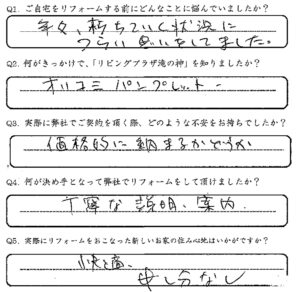 Q1. ご自宅をリフォームする前にどんなことに悩んでいましたか?
年々、朽ちていく状況に
つらい思いをしてました。
Q2. 何がきっかけで、「リビングプラザ滝の神」を知りましたか?
オリコミパンフレット
Q3. 実際に弊社でご契約を頂く際、どのような不安をお持ちでしたか?
価格的に納まるかどうか
Q4. 何が決め手となって弊社でリフォームをして頂けましたか?
丁寧な説明、案内
Q5. 実際にリフォームをおこなった新しいお家の住み心地はいかがですか?
快適、
申し分なし